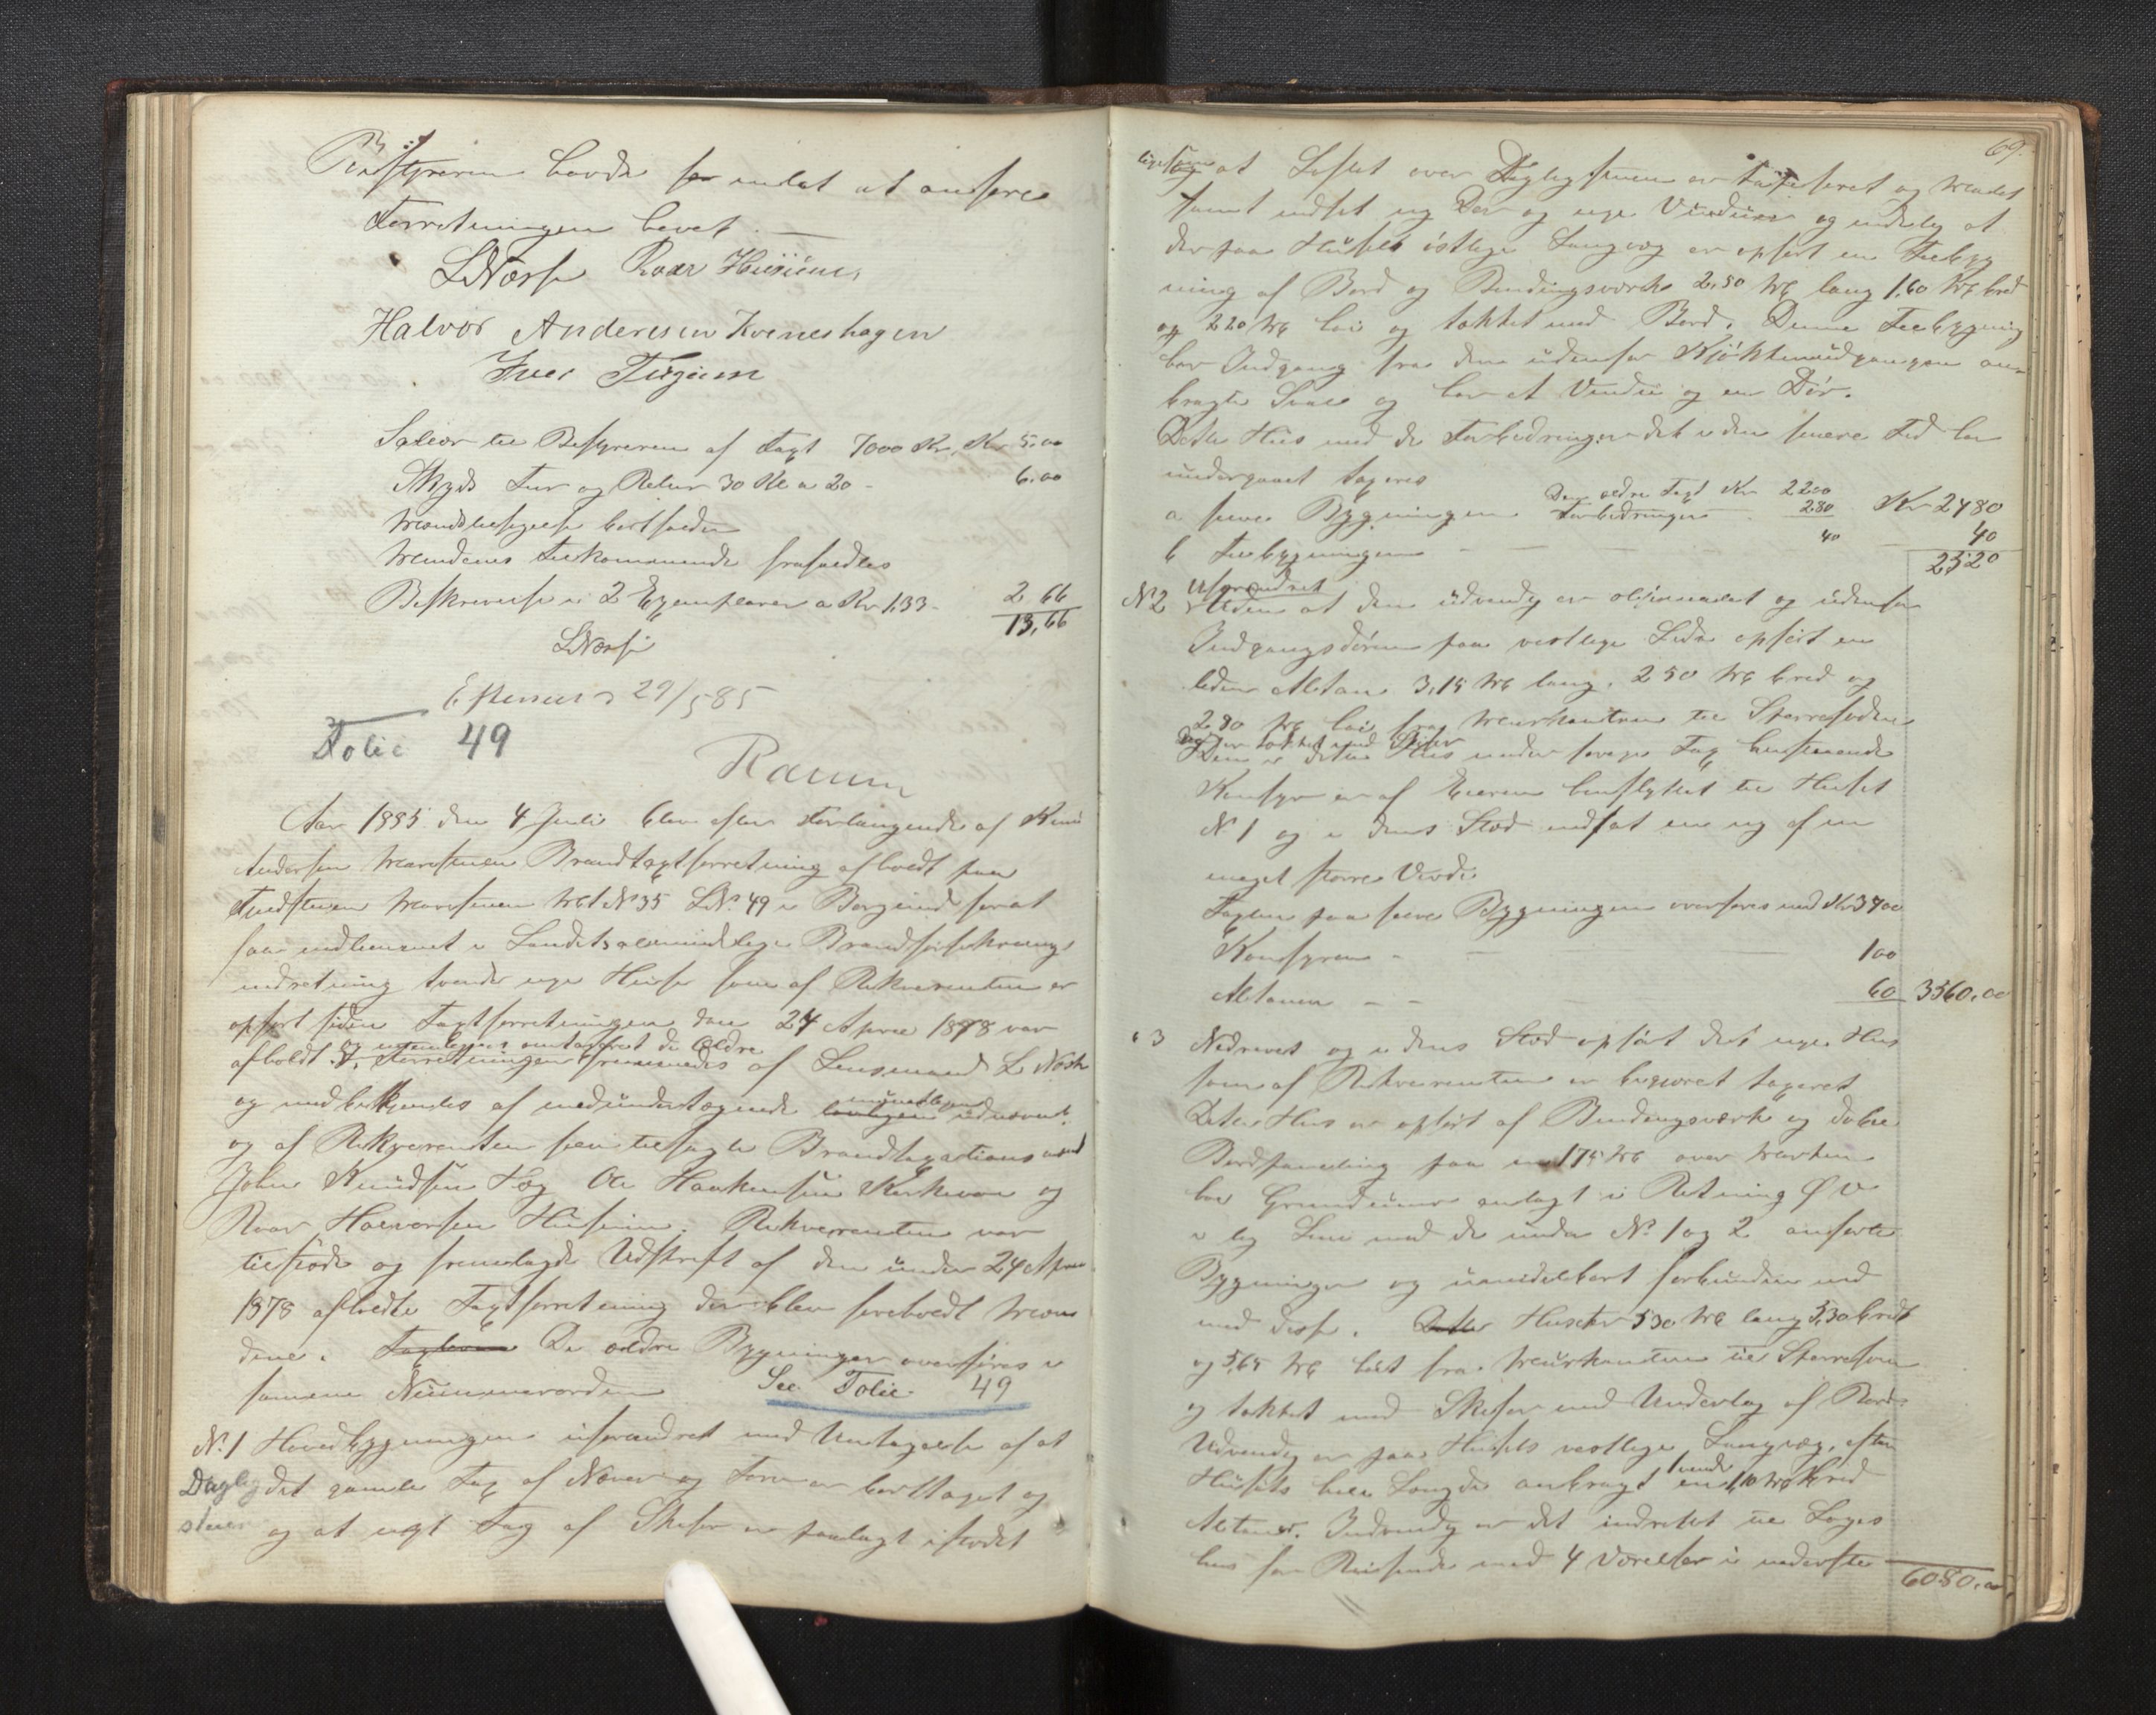 Bestyreren havde ei andet at anføre
Forretningen hevet. —
LNæss Roar Husum,
Halvor Andersen Kvineshagen
Iver Tugum
Salær til Bestyreren af Taxt 7000 Kr. Kr 5.00
Skyds Tur og Retur 30 Kl a 20 - 6.00
bortfalder
Mændenes Tilkommende frafaldtes
Beskrivelse i 2 Exemplarer a Kr 1,33 - 2 66
13,66
LNæss
29/5 85
Folie 49
Aar 1885 den 4 Juli blev efter Forlangende af Knud
Andersen Maristuen Brandtaxtforretning afholdt paa
Fjeldstuen Maristuen Mt No 35 LNo. 49 i Borgund for at
faa indlemmet i Landets almindelige Brandforsikrings
indretning tvende nye Huse som af Rekvirenten er
opført siden Taxtforretningen den 24 April 1878 var
og omtaxeret de ældre
afholdt. Forretningen fremmedes af Lensmand L Næss
og medbekjendes af medundertegnede udnævnte
og af Rekvirenten selv tilsagte Brandtaxationsmænd
John Knudsen Hæg Ole Haakensen Kirkevoll og
Roar Halvorsen Husum. Rekvirenten var
tilstede og fremlagde Udskrift af den under 24 April
1878 afholdte Taxtforretning der blev foreholdt Mæn
dene. De ældre Bygninger overføres i
samme Nummerorden See Folie 49
No. 1 Hovedbygningen uforandret med Undtagelse af at
Daglig det gamle Tag af Næver og Torv er borttaget og
stuen og at nyt Tag af Skifer er paalagt istedet
69.
ligesom at Loftet over Dagligstuen er og malet
samt indsat ny Dør og nye Vinduer og endelig at
der paa Husets østlige Langvæg er opført en Tilbyg
ning af Bord og Bindingsværk 2,50 M lang 1,60 M bred
og 2 20 M høi og tækket med Bord. Denne Tilbygning
har Indgang fra den udenfor Kjøkkenudgangen an-
bragte Sval og har et Vindu og en Dør.
Dette Hus med de Forbedringer det i den senere Tid har
undergaaet taxeres
Den ældre Taxt Kr 2200
a selve Bygningen Forbedringer 280 Kr 2480
b Tilbygningen — — — 40 40
2520
Uforandret
No 2 Uden at den udvendig er oljemalet og udenfor
Indgangsdøren paa vestlige Side opført en
liden Altan 3,15 M lang, 2 50 M bred og
2,80 M høi fra Murkanten til Sperrefoden
og er tækket med Skifer
Den i dette Hus under forrige Tax henstaaende
Komfyr er af Eieren henflyttet til Huset
No 1 og i dens Sted indsat en ny af en
meget større Værdi
Taxten paa selve Bygningen overføres med Kr 3400
Komfyren - — — 100
Altanen - - 60 3560.00
" 3 Nedrevet og i dens Sted opført det nye Hus
som af Rekvirenten er begjæret taxeret
Dette Hus er opført af Bindingsværk og dobbel
Bordpaneling paa en 1 75 M over Marken
høi Grundmur anlagt i Retning Ø V
i lig Linie med de under No. 1 og 2 anførte
Bygninger og umiddelbart forbunden med
med disse. Dette Huset er 5 30 M lang 5,30 bredt
og 5,65 M høit fra Murkanten til Sperrefoden
og tækket med Skifer med Underlag af Bord
Udvendig er paa Husets vestlige Langvæg, efter
Husets hele Længde anbragt en 1,10 M bred
Altaner. Indvendig er det indrettet til Loges
hus for Reisende med 4 Værelser i nederste
6080.00